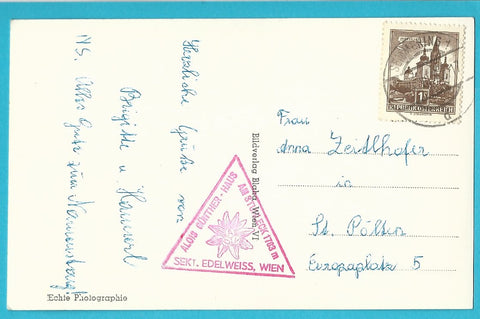 Herzliche Grüße von
Brigitte u. Hannerl
NS. Alles Gute zum Namenstag!
Echte Photographie
Bildverlag Blaha, Wien VI
ALOIS GÜNTHER-HAUS
AM STUHLECK 1783 m
SEKT. EDELWEISS, WIEN
Frau
Anna Zeidlhofer
in
St. Pölten
Europaplatz 5
1S
REPUBLIK ÖSTERREICH